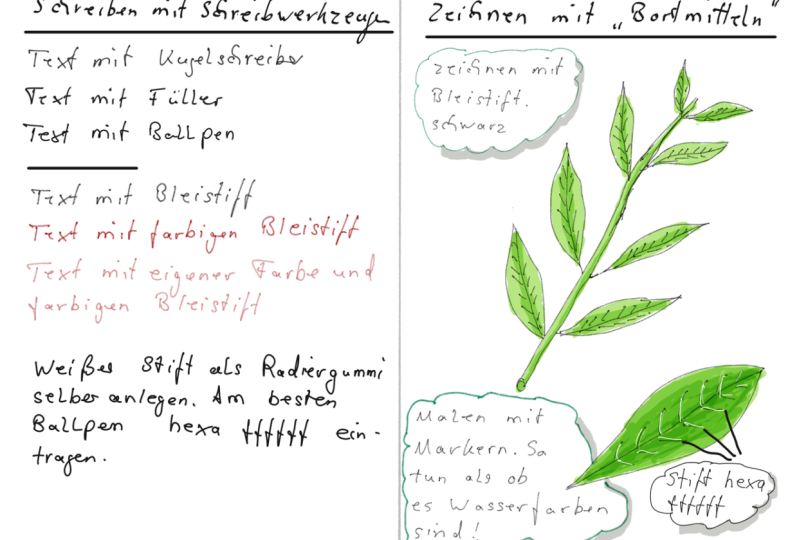 Schreiben mit Schreibwerkzeugen
Text mit Kugelschreiber
Text mit Füller
Text mit Ballpen
Text mit Bleistift
Text mit farbigen Bleistift
Text mit eigener Farbe und
farbigen Bleistift
Weißer Stift als Radiergummi
selber anlegen. Am besten
Ballpen hexa ffffff ein-
tragen.
Zeichnen mit „Bordmitteln"
zeichnen mit
Bleistift.
schwarz
Malen mit
Markern. So
tun als ob
es Wasserfarben
sind!
Stift hexa
ffffff